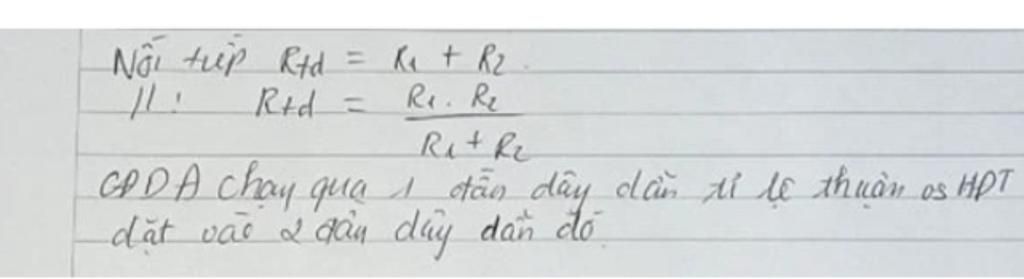 Nối tiếp Rtđ = R1 + R2.
//: Rtđ = R1 . R2
R1 + R2
CĐDĐ chạy qua 1 đầu dây dẫn tỉ lệ thuận os HĐT
đặt vào 2 đầu dây dẫn đó